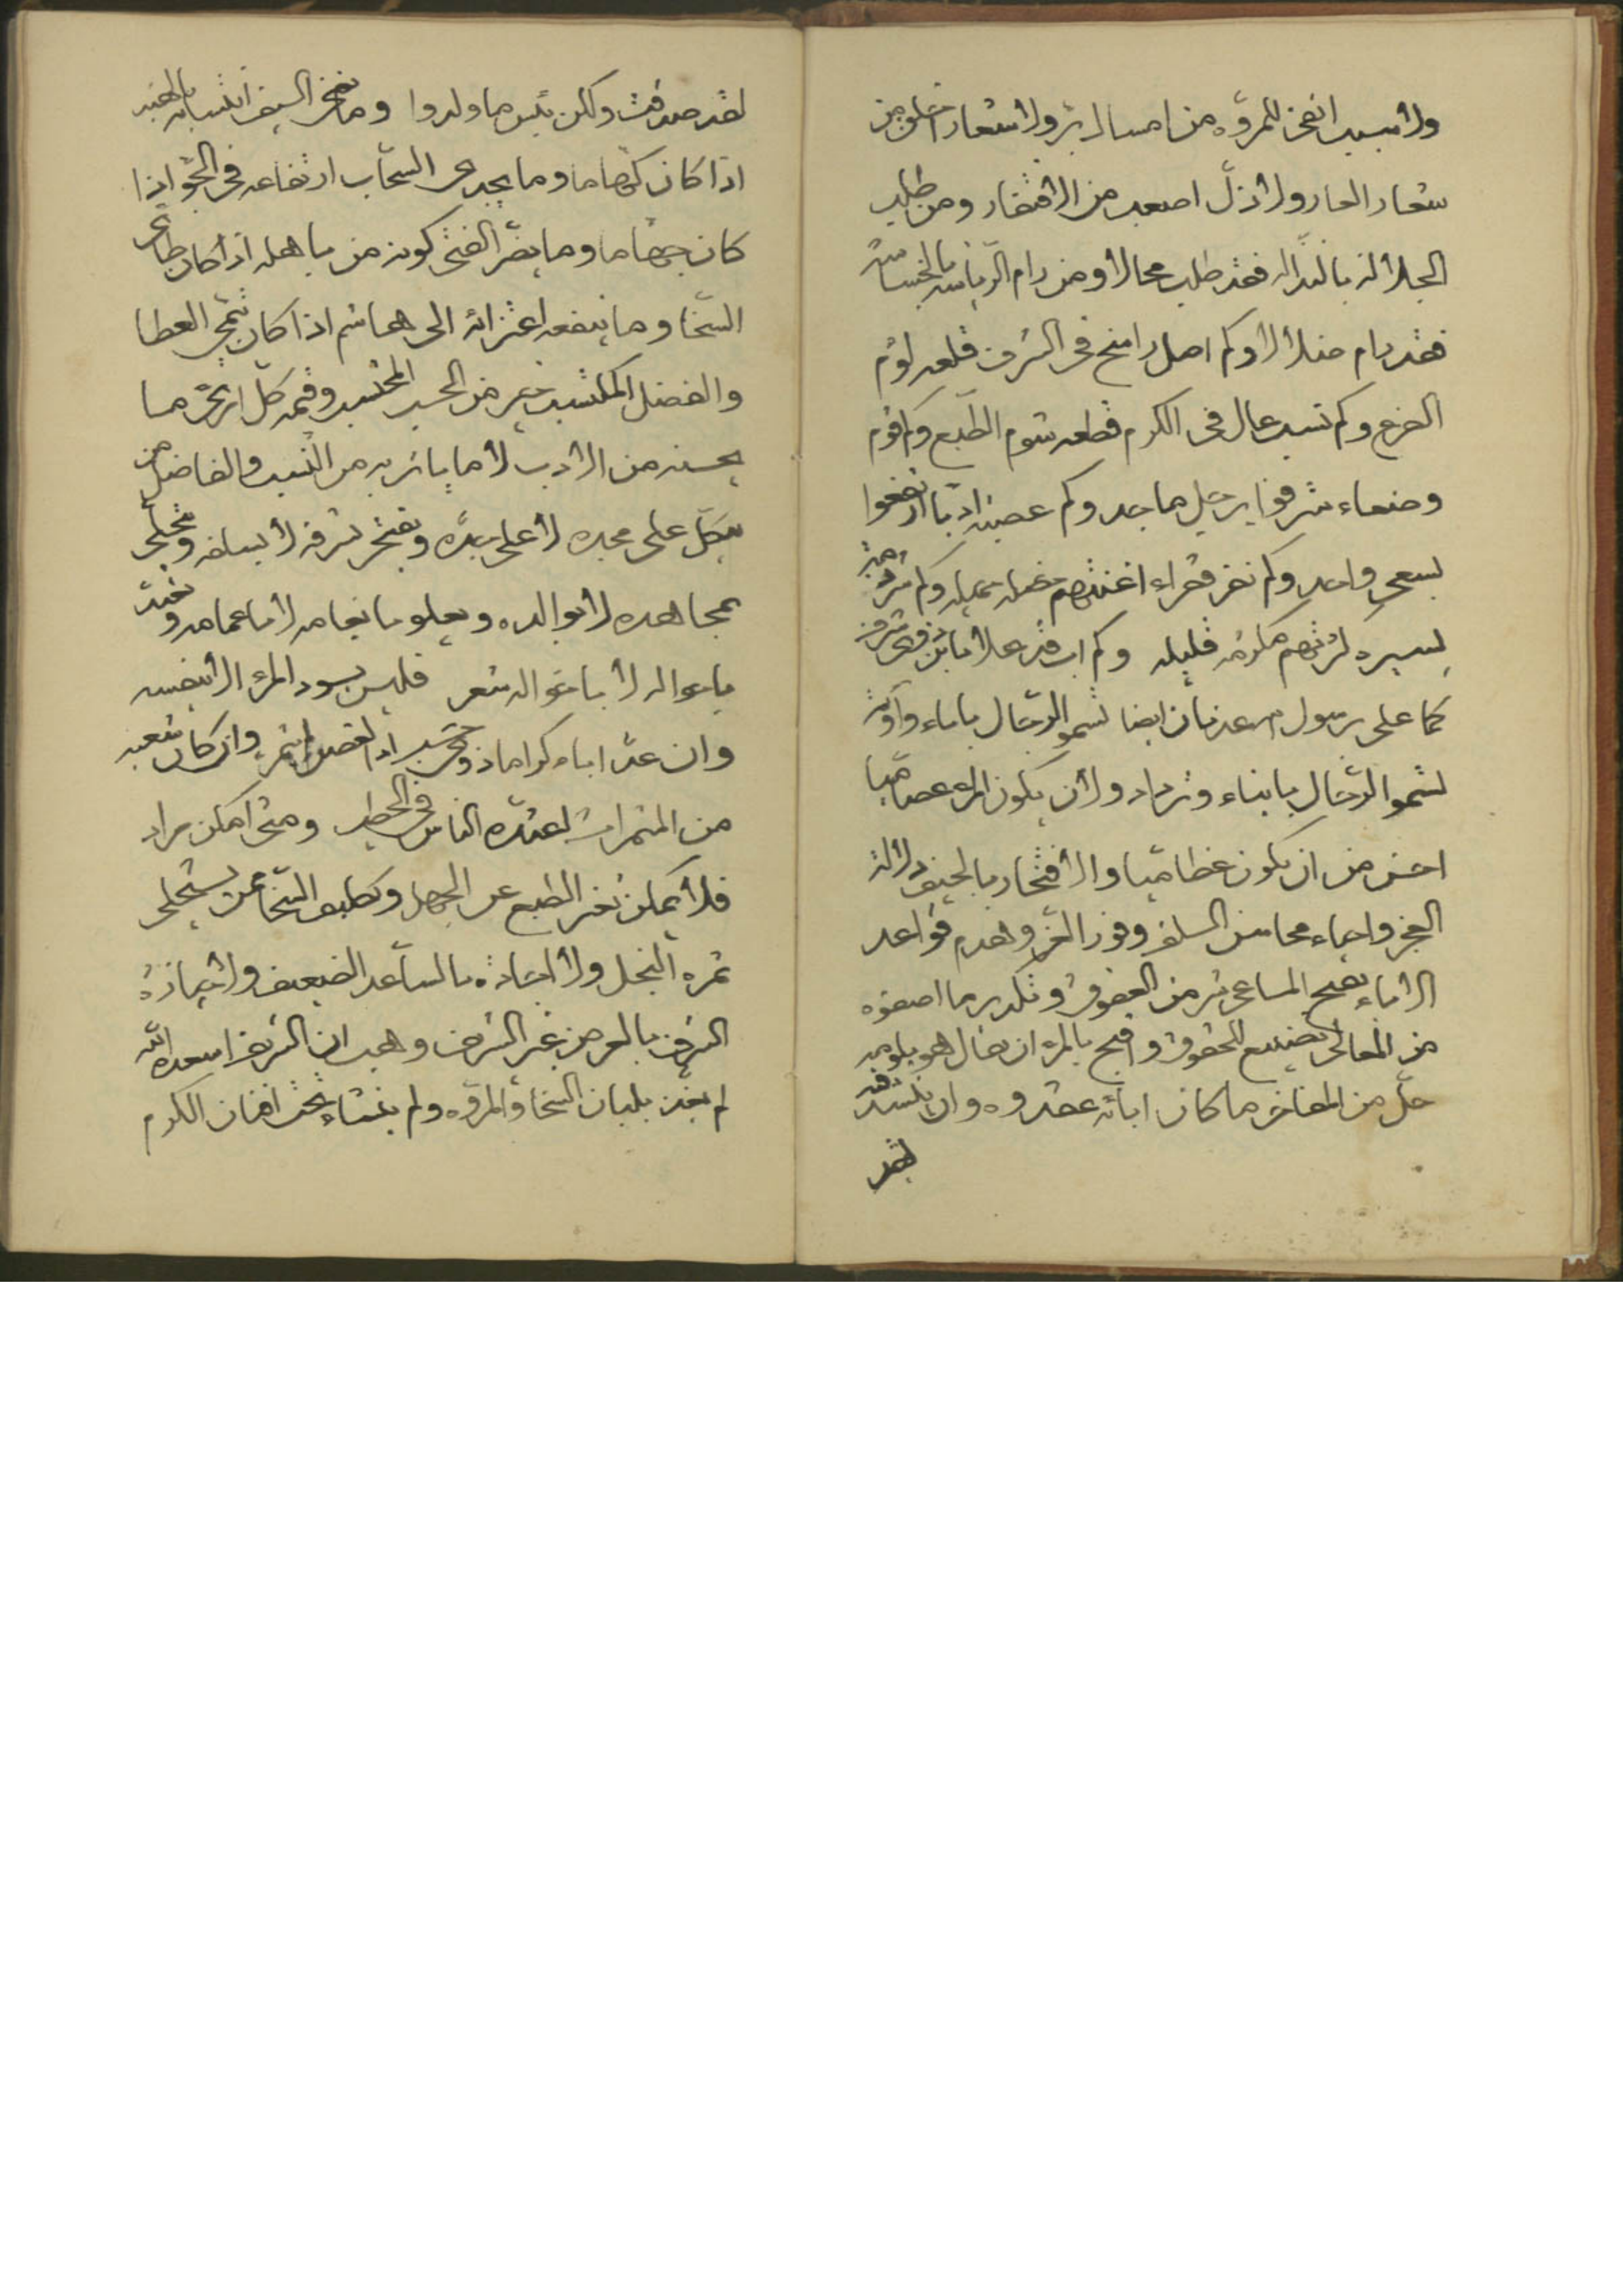 ولا سبب انفى للمروّه من امساك بِرّ ولا شعار اخلق من
شعار العار ولا ذلّ اصعب من الافتقار ومن طلب
الجلالة بالنذاله فقد طلب محالا ومن رام الرّياسه بالخساسه
فقد رام ضلالا وكم اصل راسخ فى الشرف قلعه لؤم
الفرع وكم نسب عال فى الكرم قطعه شوم الطّبع وكم قوم
وضعاء شرفوا برجل ماجد وكم عصبة ادنيا ارتفعوا
بسعى واحد وكم نفر فقراء اغنتهم خصلة جميله وكم شرذمة
يسيره كثرتهم مكرمه قليله وكم اب قد علا بابن ذرى شرف
كما على برسول الله عدنان ايضا تسمو الرّجال باباء واونة
تسمو الرّجال بابناء وتزداد ولان يكون المرء عصاميّا
احسن من ان يكون عظاميّا والافتخار بالجيف دلالة
العجز واحياء محاسن السلف فوز العزّ وهدم قواعد
الاباء بقبح المساعى شر من العقوق وتكدير ما اصفوه
من المعالى تضييع للحقوق واقبح بالمرء ان يقال هو بلومه
حلّ من المفاخر ما كان ابائه عقدوه وان ينشد فيه
لقد
لقد صدقت ولكن بئس ما ولدوا وما يفخر السيف انتسابه بالهند
اذا كان كهاما وما يجدى السّحاب ارتفاعه فى الجوّ اذا
كان جهاما وما يضرّ الفتى كونه من باهله اذا كان طائى
السّخا وما ينفعه اعتزائه الى هاشم اذا كان تيمى العطا
والفضل المكتسب خير من الحسب المحتسب وقيمه كلّ امرئ ما
يحسنه من الادب لا ما ياثر به من النّسب والفاضل من
يتكل على مجده لا على جدّه ويفتخر بشرفه لا بسلفه ويتحلّى
بمجاهده لا بوالده ويعلو بانعامه لا باعمامه و
باحواله لا باخواله شعر فليس يسود المرء الا بنفسه
وان عدّ اباء كراما ذوى حسب اذا الغصن لم يثمر وان كان شعبة
من المثمرات اعتدّه الناس فى الحطب ومتى امكن مراد
فلا يمكن تغير الطبع عن الجهل وكطبق السّخا عمن يستحلى
ثمره البخل ولا المجاده بالساعد الضعيف ولا حيازة
الشرف بالعرض غير الشرف وهب ان الشريف اسعده الله
لم يغذ بلبان السّخا والمروّه ولم ينشاء تحت افنان الكرم